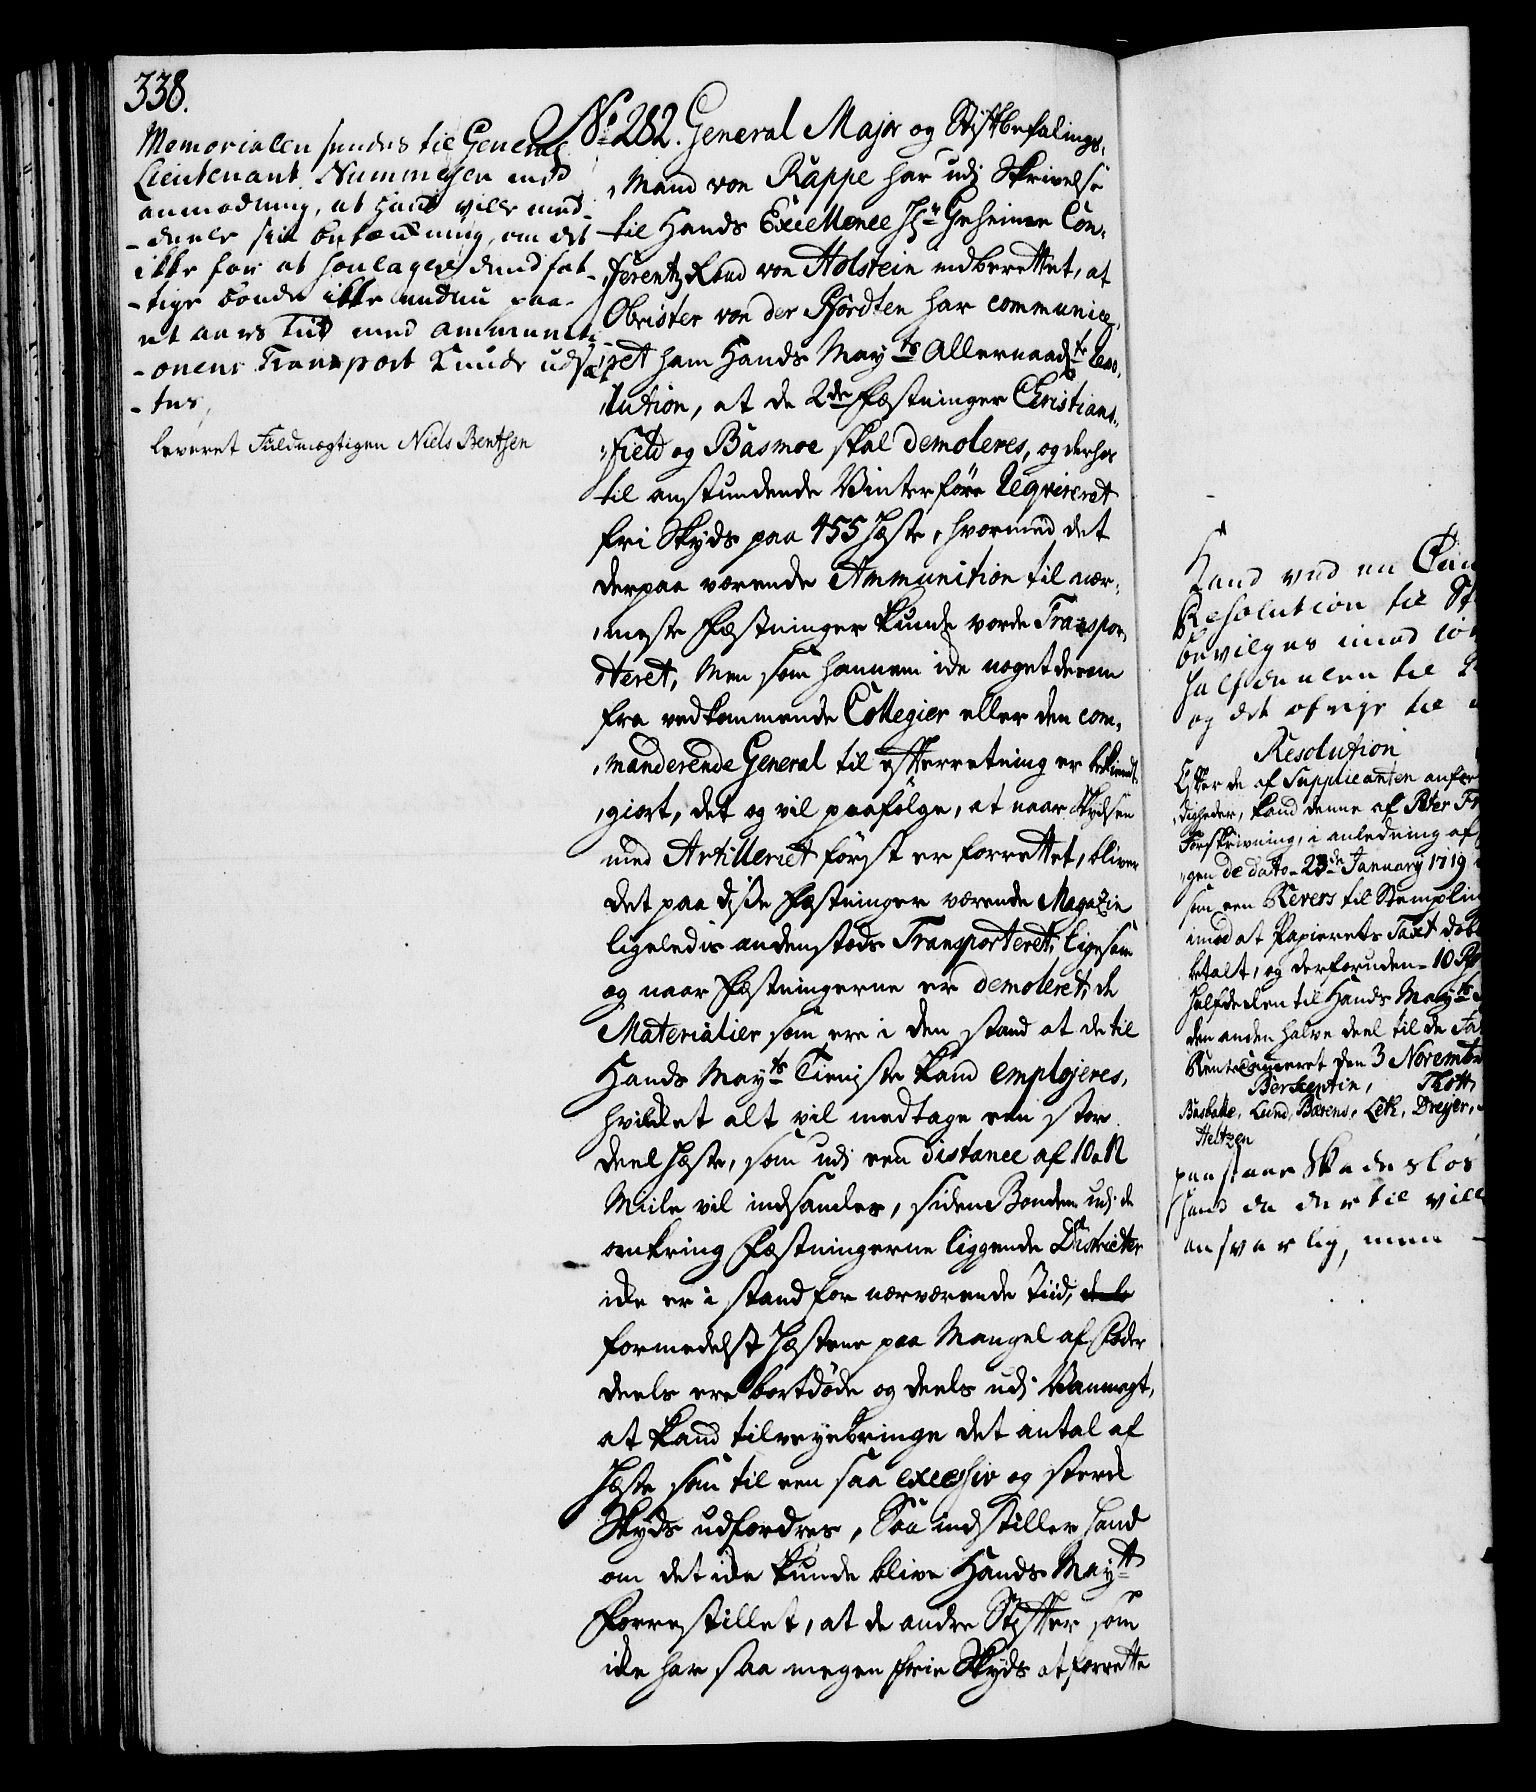 338.
Memorialen sendes til General
Lieutenant Nummesen med
anmodning, at hand ville med-
-deele sin betænkning, om det
ikke for at soulagere dend fat-
-tige bonde ikke endnu paa
et aars Tiid med ammuniti-
-onens Transport kunde udsæt-
-tes,
leveret Fuldmægtigen Niels Bentzen
No 282. General Major og Stiftbefalings-
Mand von Rappe har udj Skrivelse
til Hands Excellence Hr Geheimer Con-
ferentz Raad von Holstein indberettet, at
Obrister von der Pfordten har communice-
ret ham Hands Mayts Allernaadte Reso-
lution, at de 2de Fæstninger Christians-
field og Basmoe skal demoleres, og derhos
til anstundende Vinterføre Reqvireret
fri Skyds paa 455 Hæste, hvormed det
derpaa værende Ammunition til nær-
meste Fæstninger kunde vorde Transpor-
teret, Men som hannem icke noget derom
fra vedkommende Collegier eller den com-
manderende General til efterretning er bekiendt-
giort, det og vil paafølge, at naar Skydsen
med Artilleriet først er forrettet, bliver
det paa disse Fæstninger værende Magazin
ligeledis andenstæds Transporteret, ligesom
og naar Fæstningerne er demoleret, de
Materialier som ere i den stand at de til
Hands Mayts Tieniste kand employeres,
hvilket alt vil medtage een stor
deel Hæste, som udj een distance af 10 a 12
Miile vil indsamles, siden Bonden udj de
omkring Fæstningerne liggende Districter
icke er i stand for nærværende Tiid,
formedelst Hæstene paa Mangel af Foder
deels ere bortdøde og deels udj Vanmagt,
at kand tilveyebringe det antal af
Hæste som til een saa excessiv og sterck
Skyds udfordres, Saa indstiller hand
om det icke kunde blive Hands Mayts
Forrestillet, at de andre Stifter som
icke har saa megen frie Skyds at forrette
Kand ved en
Resolution til
bevilges imod
halfdeelen til
og det øfrige til
Resolution
Efter de af Supplicanten anfør
digheder, kand denne af Peter
Forskrivning, i anledning af
gen de dato 23de January 1719
som een Revers til Stempling
imod at Papierets Taxt dob
betalt, og derforuden 10
Halfdeelen til Hands Mayts
den anden halve deel til de
Rentecammeret den 3 Novembr
Berckentin, Thott,
Lund, Bærens, Leth, Dreyer,
Heltzen
paastaar Skadesløs
hand da dertil vill
ansvarlig, men